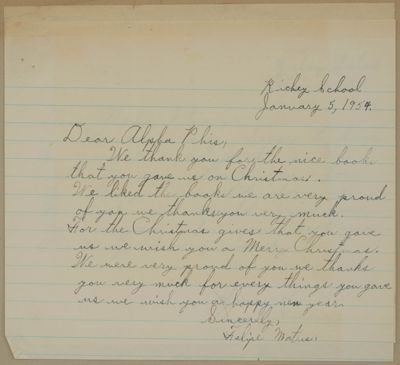 Richey School
January 5, 1954.
Dear Alpha Phis,
We thank you for the nice books
that you gave us on Christmas.
We liked the books we are very proud
of you we thanks you very much.
For the Christmas gives that you gave
us we wish you a Merry Christmas.
We were very proud of you we thanks
you very much for every things you gave
us we wish you a happy new year.
Sincerely,
Felipe Matus.